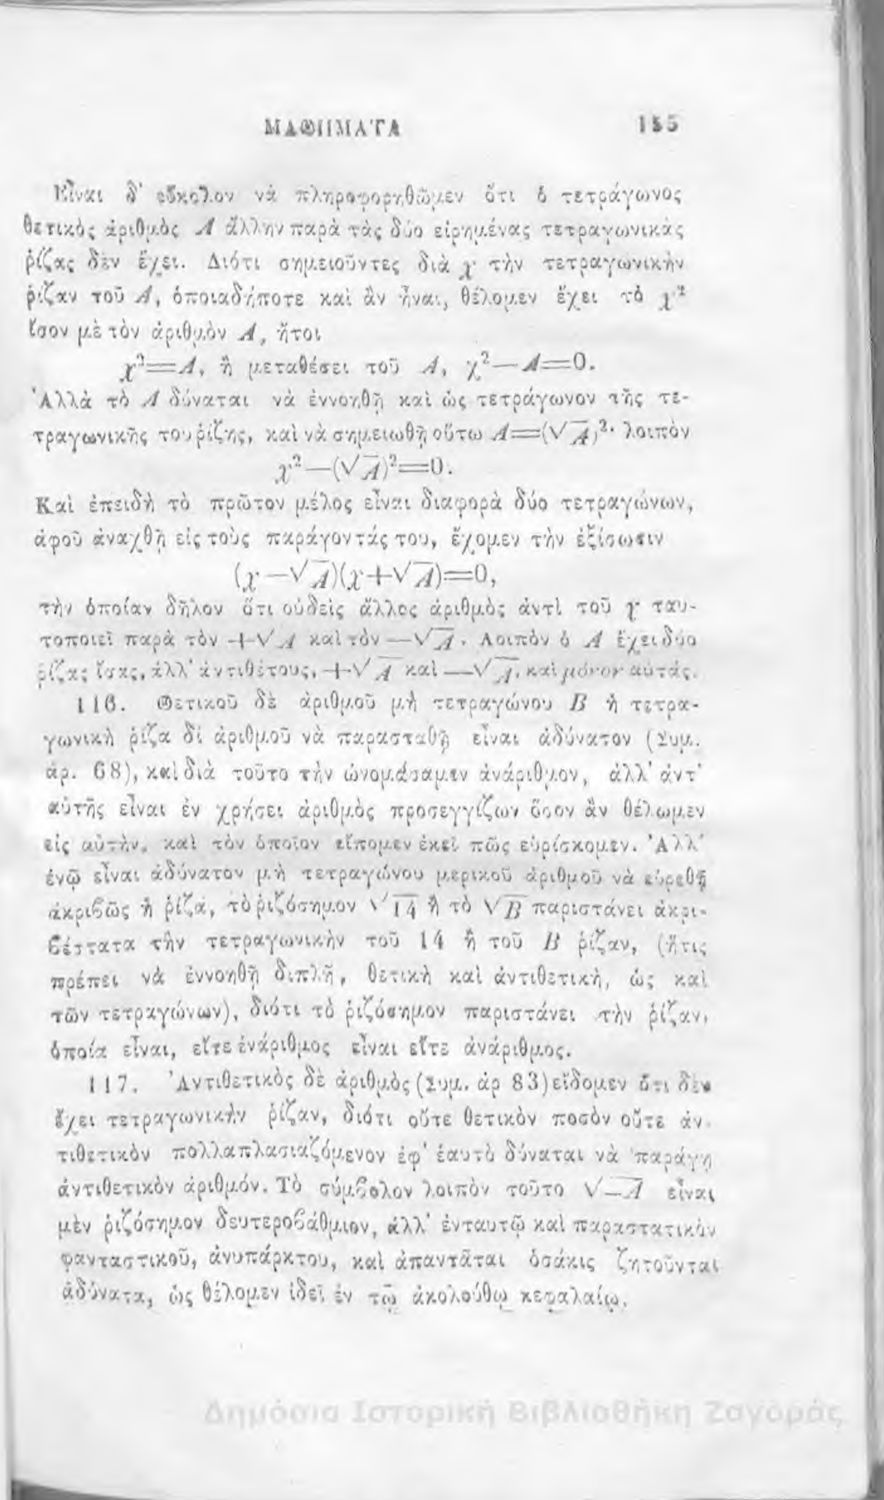 ΜΑΘΗΜΑΤΑ 155
Εἶναι δ' εὔκολον νὰ πληροφορηθῶμεν ὅτι ὁ τετράγωνος
θετικὸς ἀριθμὸς Α ἄλλην παρὰ τὰς δύο εἰρημένας τετραγωνικὰς
ῥίζας δὲν ἔχει. Διότι σημειοῦντες διὰ χ τὴν τετραγωνικὴν
ῥίζαν τοῦ Α, ὁποιαδήποτε καὶ ἂν ἦναι, θέλομεν ἔχει τὸ χ²
ἴσον μὲ τὸν ἀριθμὸν Α, ἤτοι
χ²=Α, ἢ μεταθέσει τοῦ Α, χ²—Α=0.
Ἀλλὰ τὸ Α δύναται νὰ ἐννοηθῇ καὶ ὡς τετράγωνον τῆς τε-
τραγωνικῆς του ῥίζης, καὶ νὰ σημειωθῇ οὕτω Α=(√Α)²· λοιπὸν
χ²—(√Α)²=0.
Καὶ ἐπειδὴ τὸ πρῶτον μέλος εἶναι διαφορὰ δύο τετραγώνων,
ἀφοῦ ἀναχθῇ εἰς τοὺς παράγοντάς του, ἔχομεν τὴν ἐξίσωσιν
(χ—√Α)(χ+√Α)=0,
τὴν ὁποίαν δῆλον ὅτι οὐδεὶς ἄλλος ἀριθμὸς ἀντὶ τοῦ χ ταυ-
τοποιεῖ παρὰ τὸν +√Α καὶ τὸν —√Α. Λοιπὸν ὁ Α ἔχει δύο
ῥίζας ἴσας, ἀλλ' ἀντιθέτους, +√Α καὶ —√Α, καὶ μόνον αὐτάς.
116. Θετικοῦ δὲ ἀριθμοῦ μὴ τετραγώνου Β ἡ τετρα-
γωνικὴ ῥίζα δι ἀριθμοῦ νὰ παρασταθῇ εἶναι ἀδύνατον (Συμ.
ἀρ. 68), καὶ διὰ τοῦτο τὴν ὠνομάσαμεν ἀνάριθμον, ἀλλ' ἀντ'
αὐτῆς εἶναι ἐν χρήσει ἀριθμὸς προσεγγίζων ὅσον ἂν θέλωμεν
εἰς αὐτὴν, καὶ τὸν ὁποῖον εἴπομεν ἐκεῖ πῶς εὑρίσκομεν. Ἀλλ'
ἐνῷ εἶναι ἀδύνατον μὴ τετραγώνου μερικοῦ ἀριθμοῦ νὰ εὑρεθῇ
ἀκριβῶς ἡ ῥίζα, τὸ ῥιζόσημον √14 ἢ τὸ √Β παριστάνει ἀκρι-
βέστατα τὴν τετραγωνικὴν τοῦ 14 ἢ τοῦ Β ῥίζαν, (ἥτις
πρέπει νὰ ἐννοηθῇ διπλῆ, θετικὴ καὶ ἀντιθετικὴ, ὡς καὶ
τῶν τετραγώνων), διότι τὸ ῥιζόσημον παριστάνει τὴν ῥίζαν,
ὁποία εἶναι, εἴτε ἐνάριθμος εἶναι εἴτε ἀνάριθμος.
117. Ἀντιθετικὸς δὲ ἀριθμὸς (Συμ. ἀρ 83) εἴδομεν ὅτι δὲν
ἔχει τετραγωνικὴν ῥίζαν, διότι οὔτε θετικὸν ποσὸν οὔτε ἀν-
τιθετικὸν πολλαπλασιαζόμενον ἐφ' ἑαυτὸ δύναται νὰ παράγῃ
ἀντιθετικὸν ἀριθμόν. Τὸ σύμβολον λοιπὸν τοῦτο √—Α εἶναι
μὲν ῥιζόσημον δευτεροβάθμιον, ἀλλ' ἐνταυτῷ καὶ παραστατικὸν
φανταστικοῦ, ἀνυπάρκτου, καὶ ἀπαντᾶται ὁσάκις ζητοῦνται
ἀδύνατα, ὡς θέλομεν ἰδεῖ ἐν τῷ ἀκολούθῳ κεφαλαίῳ.
Δημόσια Ιστορική Βιβλιοθήκη Ζαγοράς